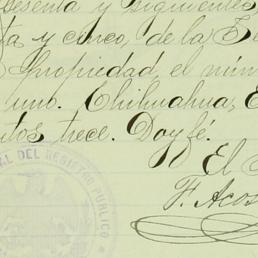 sesenta y siguientes
ta y cinco, de la Se
Propiedad, el núm
uno. Chihuahua, E
tos trece. Doy fé.
El
F. Acos
AL DEL REGISTRO PUBLICO